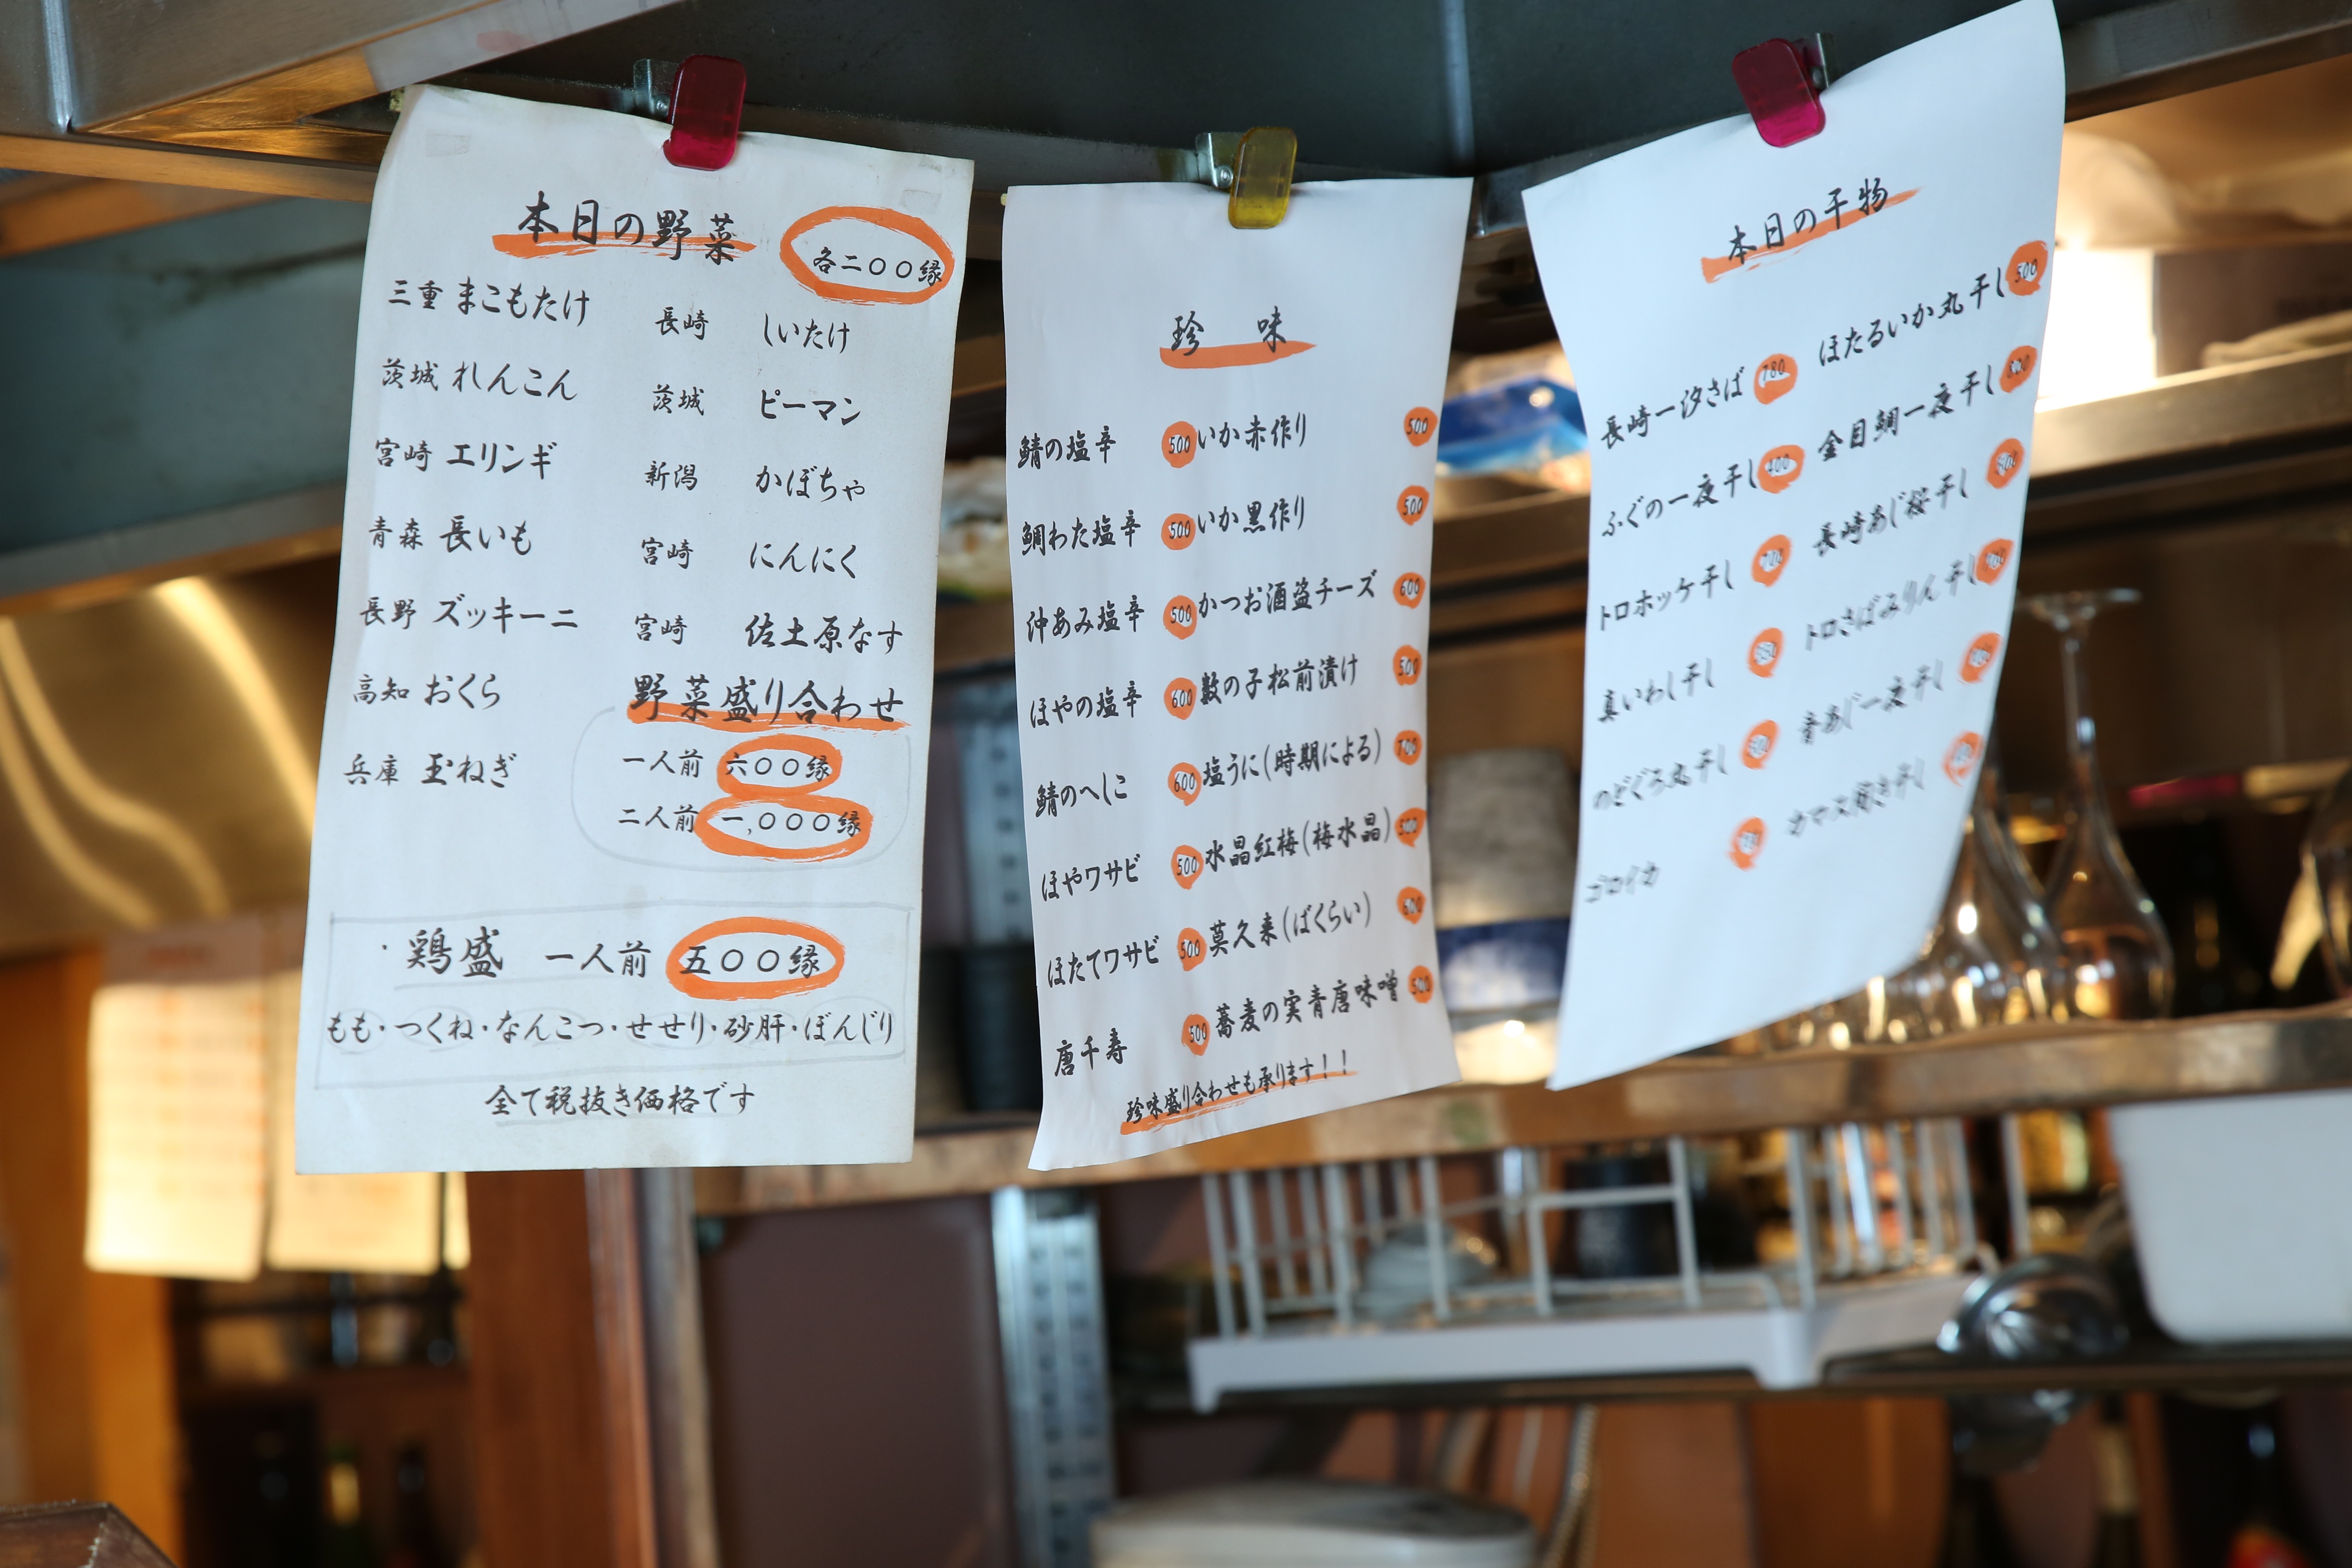 本日の野菜
各二〇〇縁
三重 まこもたけ
茨城 れんこん
宮崎 エリンギ
青森 長いも
長野 ズッキーニ
高知 おくら
兵庫 玉ねぎ
長崎 しいたけ
茨城 ピーマン
新潟 かぼちゃ
宮崎 にんにく
宮崎 佐土原なす
野菜盛り合わせ
一人前 六〇〇縁
二人前 一,〇〇〇縁
・鶏盛 一人前 五〇〇縁
もも・つくね・なんこつ・せせり・砂肝・ぼんじり
全て税抜き価格です
珍 味
鯖の塩辛 500
鯛わた塩辛 500
沖あみ塩辛 500
ほやの塩辛 600
鯖のへしこ 600
ほやワサビ 500
ほたてワサビ 500
唐千寿 500
いか赤作り 500
いか黒作り 500
かつお酒盗チーズ 600
数の子松前漬け 500
塩うに(時期による) 700
水晶紅梅(梅水晶) 500
莫久来(ばくらい) 600
蕎麦の実青唐味噌 500
珍味盛り合わせも承ります！！
本日の干物
長崎一汐さば 780
ふぐの一夜干し 400
トロホッケ干し
真いわし干し
のどぐろ丸干し
ゴロイカ
ほたるいか丸干し 500
金目鯛一夜干し
長崎あじ桜干し
トロさばみりん干し
青あじ一夜干し
カマス開き干し